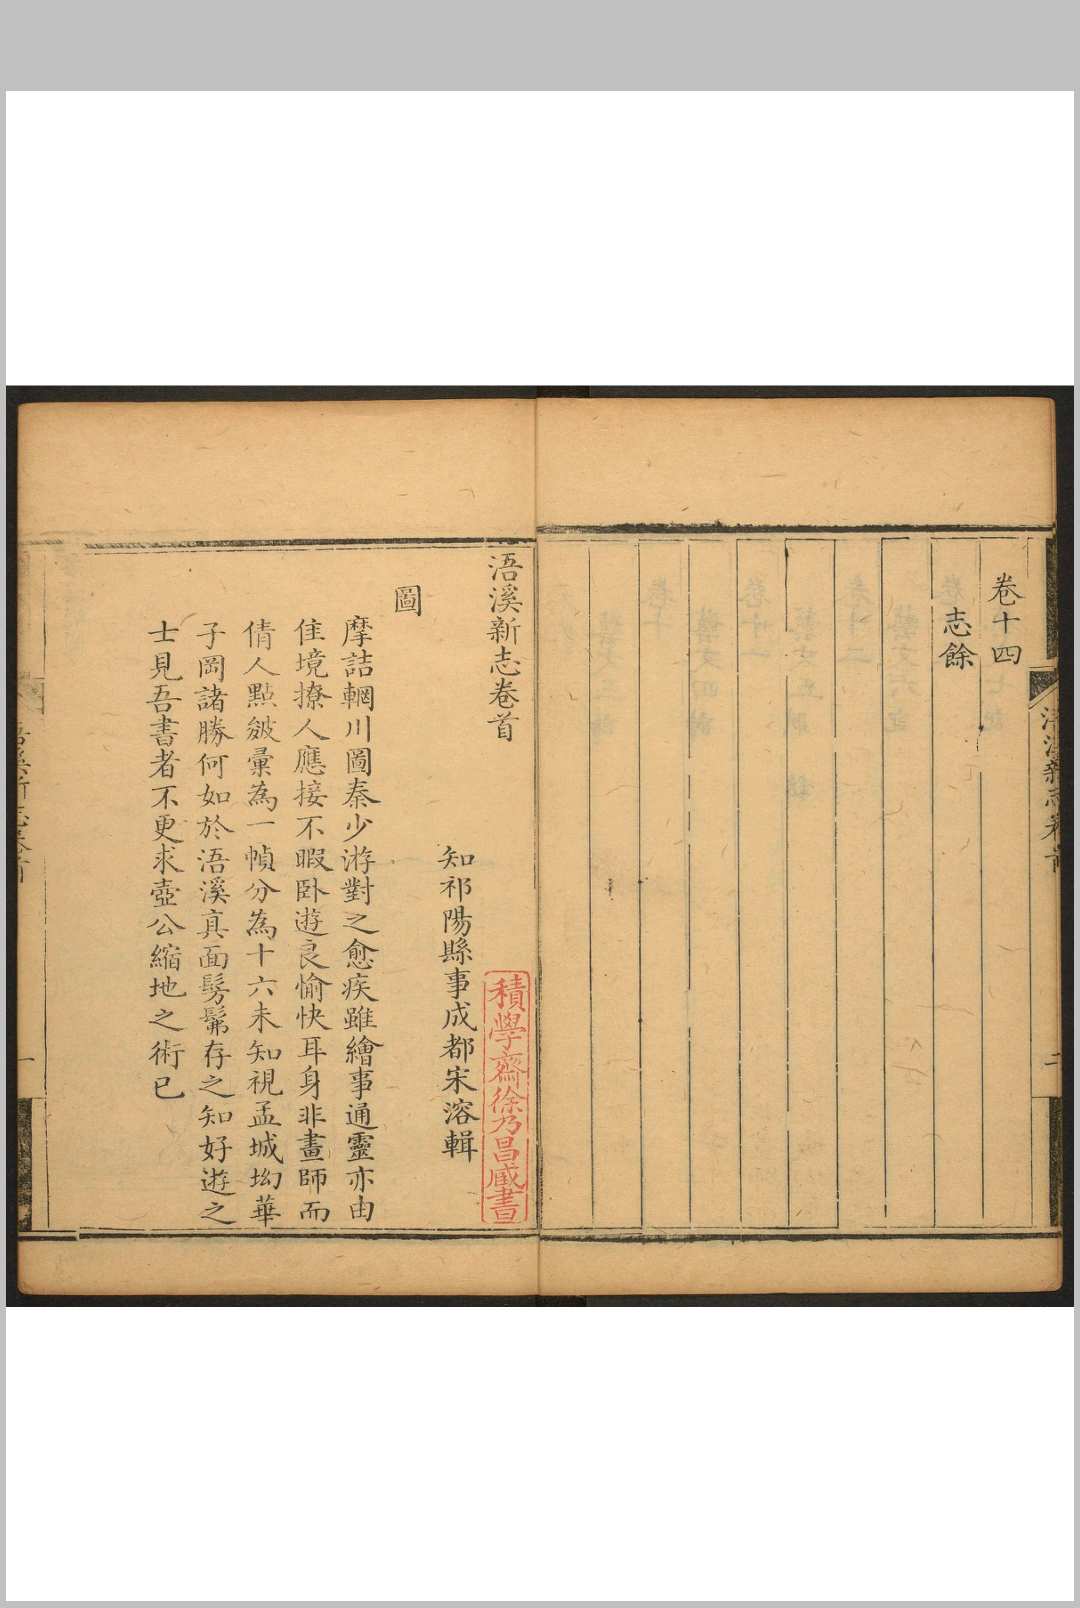 卷十四
志餘
浯溪新志卷首
二
浯溪新志卷首
知祁陽縣事成都宋溶輯
積學齋徐乃昌藏書
圖
摩詰輞川圖秦少游對之愈疾雖繪事通靈亦由
佳境撩人應接不暇卧遊良愉快耳身非畫師而
倩人點皴彙為一幀分為十六未知視孟城坳華
子岡諸勝何如於浯溪真面髣髴存之知好遊之
士見吾書者不更求壺公縮地之術已
浯溪新志卷首
一